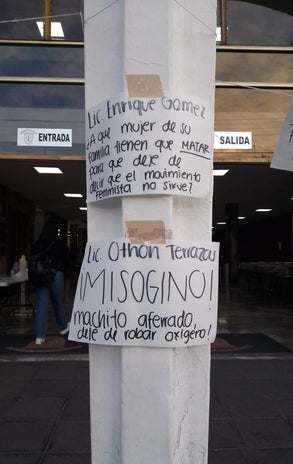 Lic. Enrique Gomez
¿A que mujer de su
familia tienen que MATAR
para que deje de
decir que el movimiento
feminista no sirve?
ENTRADA
SALIDA
Lic. Othon Terrazas
¡MISOGINO!
machito aferrado,
deje de robar oxigeno!